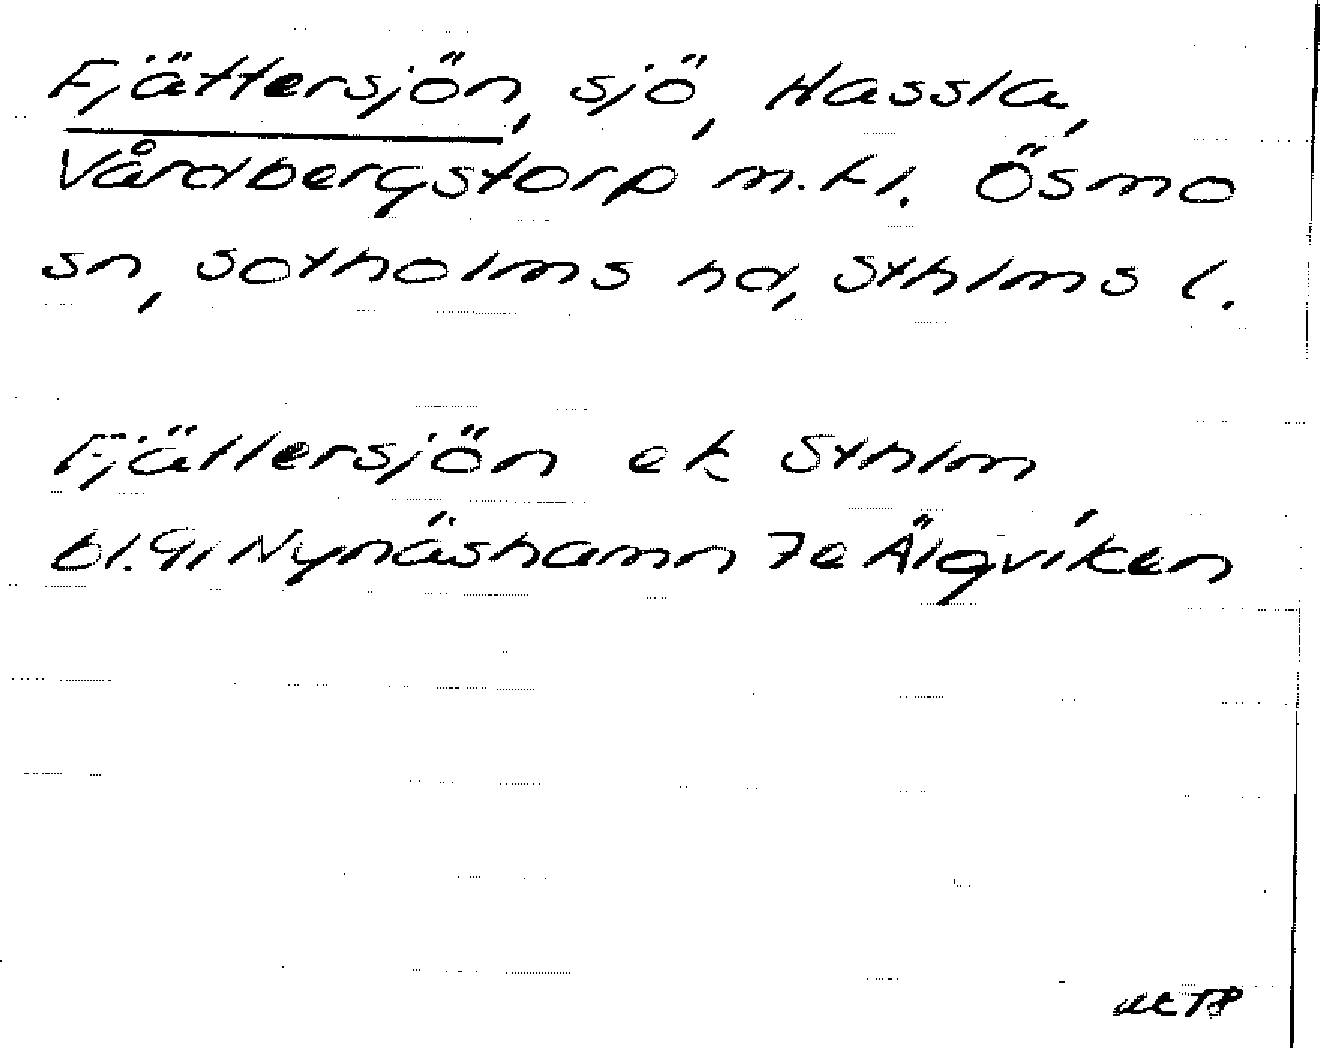 Fjättersjön, sjö, Hassla,
Vårdbergstorp m.fl. Ösmo
sn, Sotholms hd, Sthlms l.
Fjällersjön ek Sthlm
bl. 9i Nynäshamn 7e Älgviken